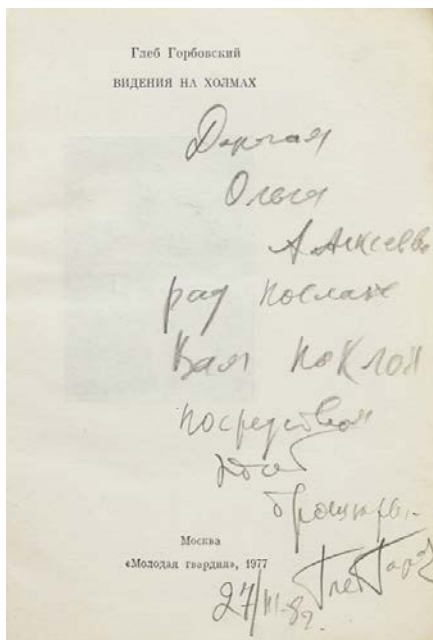 Глеб Горбовский
ВИДЕНИЯ НА ХОЛМАХ
Дорогая
Ольга
Алексеевна
рад послать
Вам поклон
посредством
этой
брошюры.
Москва
«Молодая гвардия», 1977
Глеб Горб
27/III-82.